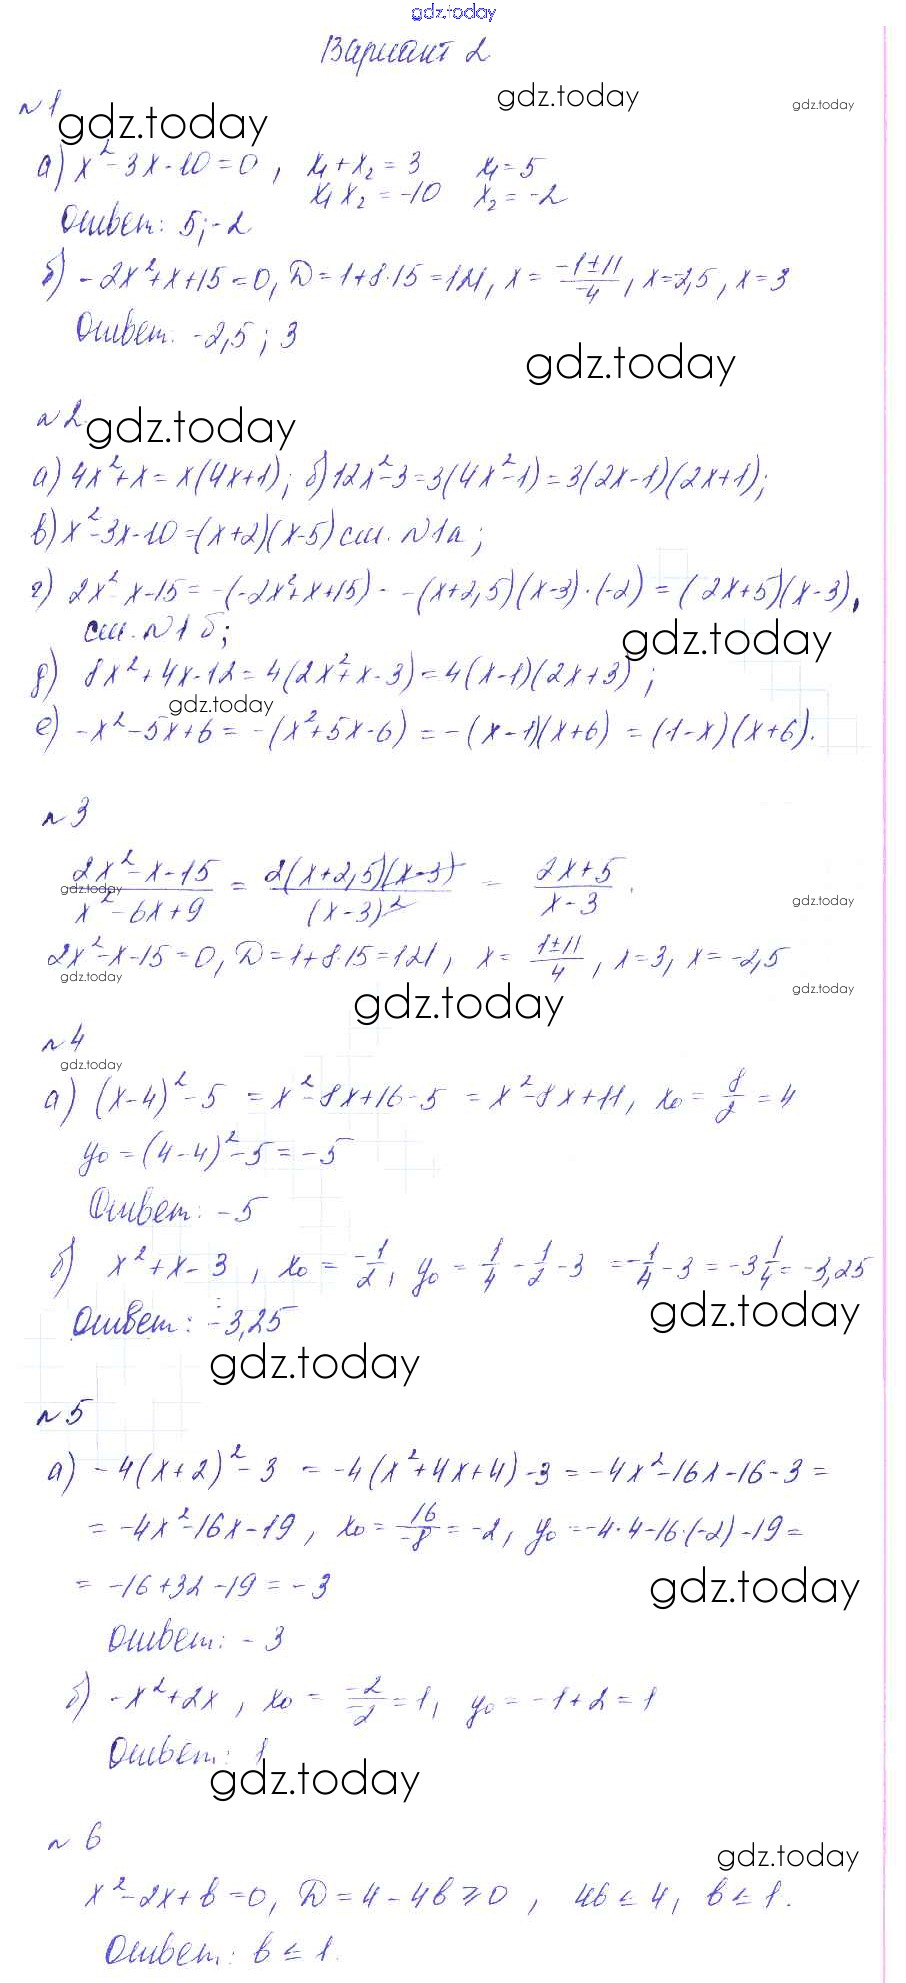 gdz.today
Вариант 2
№1
gdz.today
gdz.today
gdz.today
а) x² - 3x - 10 = 0 , x₁ + x₂ = 3 x₁ = 5
x₁ x₂ = -10 x₂ = -2
Ответ: 5; -2
б) -2x² + x + 15 = 0, D = 1 + 8·15 = 121, x = (-1 ± 11)/-4 , x = -2,5 , x = 3
Ответ: -2,5 ; 3
gdz.today
№2
gdz.today
а) 4x² + x = x(4x+1); б) 12x² - 3 = 3(4x² - 1) = 3(2x-1)(2x+1);
в) x² - 3x - 10 = (x+2)(x-5) см. №1а;
г) 2x² - x - 15 = -(-2x² + x + 15) = -(x+2,5)(x-3)·(-2) = (2x+5)(x-3),
см. №1б;
gdz.today
д) 8x² + 4x - 12 = 4(2x² + x - 3) = 4(x-1)(2x+3) ;
gdz.today
е) -x² - 5x + 6 = -(x² + 5x - 6) = -(x-1)(x+6) = (1-x)(x+6).
№3
(2x² - x - 15)/(x² - 6x + 9) = 2(x+2,5)(x-3)/(x-3)² = (2x+5)/(x-3) .
gdz.today
gdz.today
2x² - x - 15 = 0, D = 1 + 8·15 = 121, x = (1 ± 11)/4 , x = 3, x = -2,5
gdz.today
gdz.today
gdz.today
№4
gdz.today
а) (x-4)² - 5 = x² - 8x + 16 - 5 = x² - 8x + 11, x₀ = 8/2 = 4
y₀ = (4-4)² - 5 = -5
Ответ: -5
б) x² + x - 3 , x₀ = -1/2, y₀ = 1/4 - 1/2 - 3 = -1/4 - 3 = -3 1/4 = -3,25
gdz.today
Ответ: -3,25
gdz.today
№5
а) -4(x+2)² - 3 = -4(x² + 4x + 4) - 3 = -4x² - 16x - 16 - 3 =
= -4x² - 16x - 19 , x₀ = 16/-8 = -2, y₀ = -4·4 - 16·(-2) - 19 =
= -16 + 32 - 19 = -3
gdz.today
Ответ: -3
б) -x² + 2x , x₀ = -2/-2 = 1, y₀ = -1 + 2 = 1
Ответ: 1
gdz.today
№6
gdz.today
x² - 2x + b = 0, D = 4 - 4b ⩾ 0 , 4b ≤ 4, b ≤ 1.
Ответ: b ≤ 1.